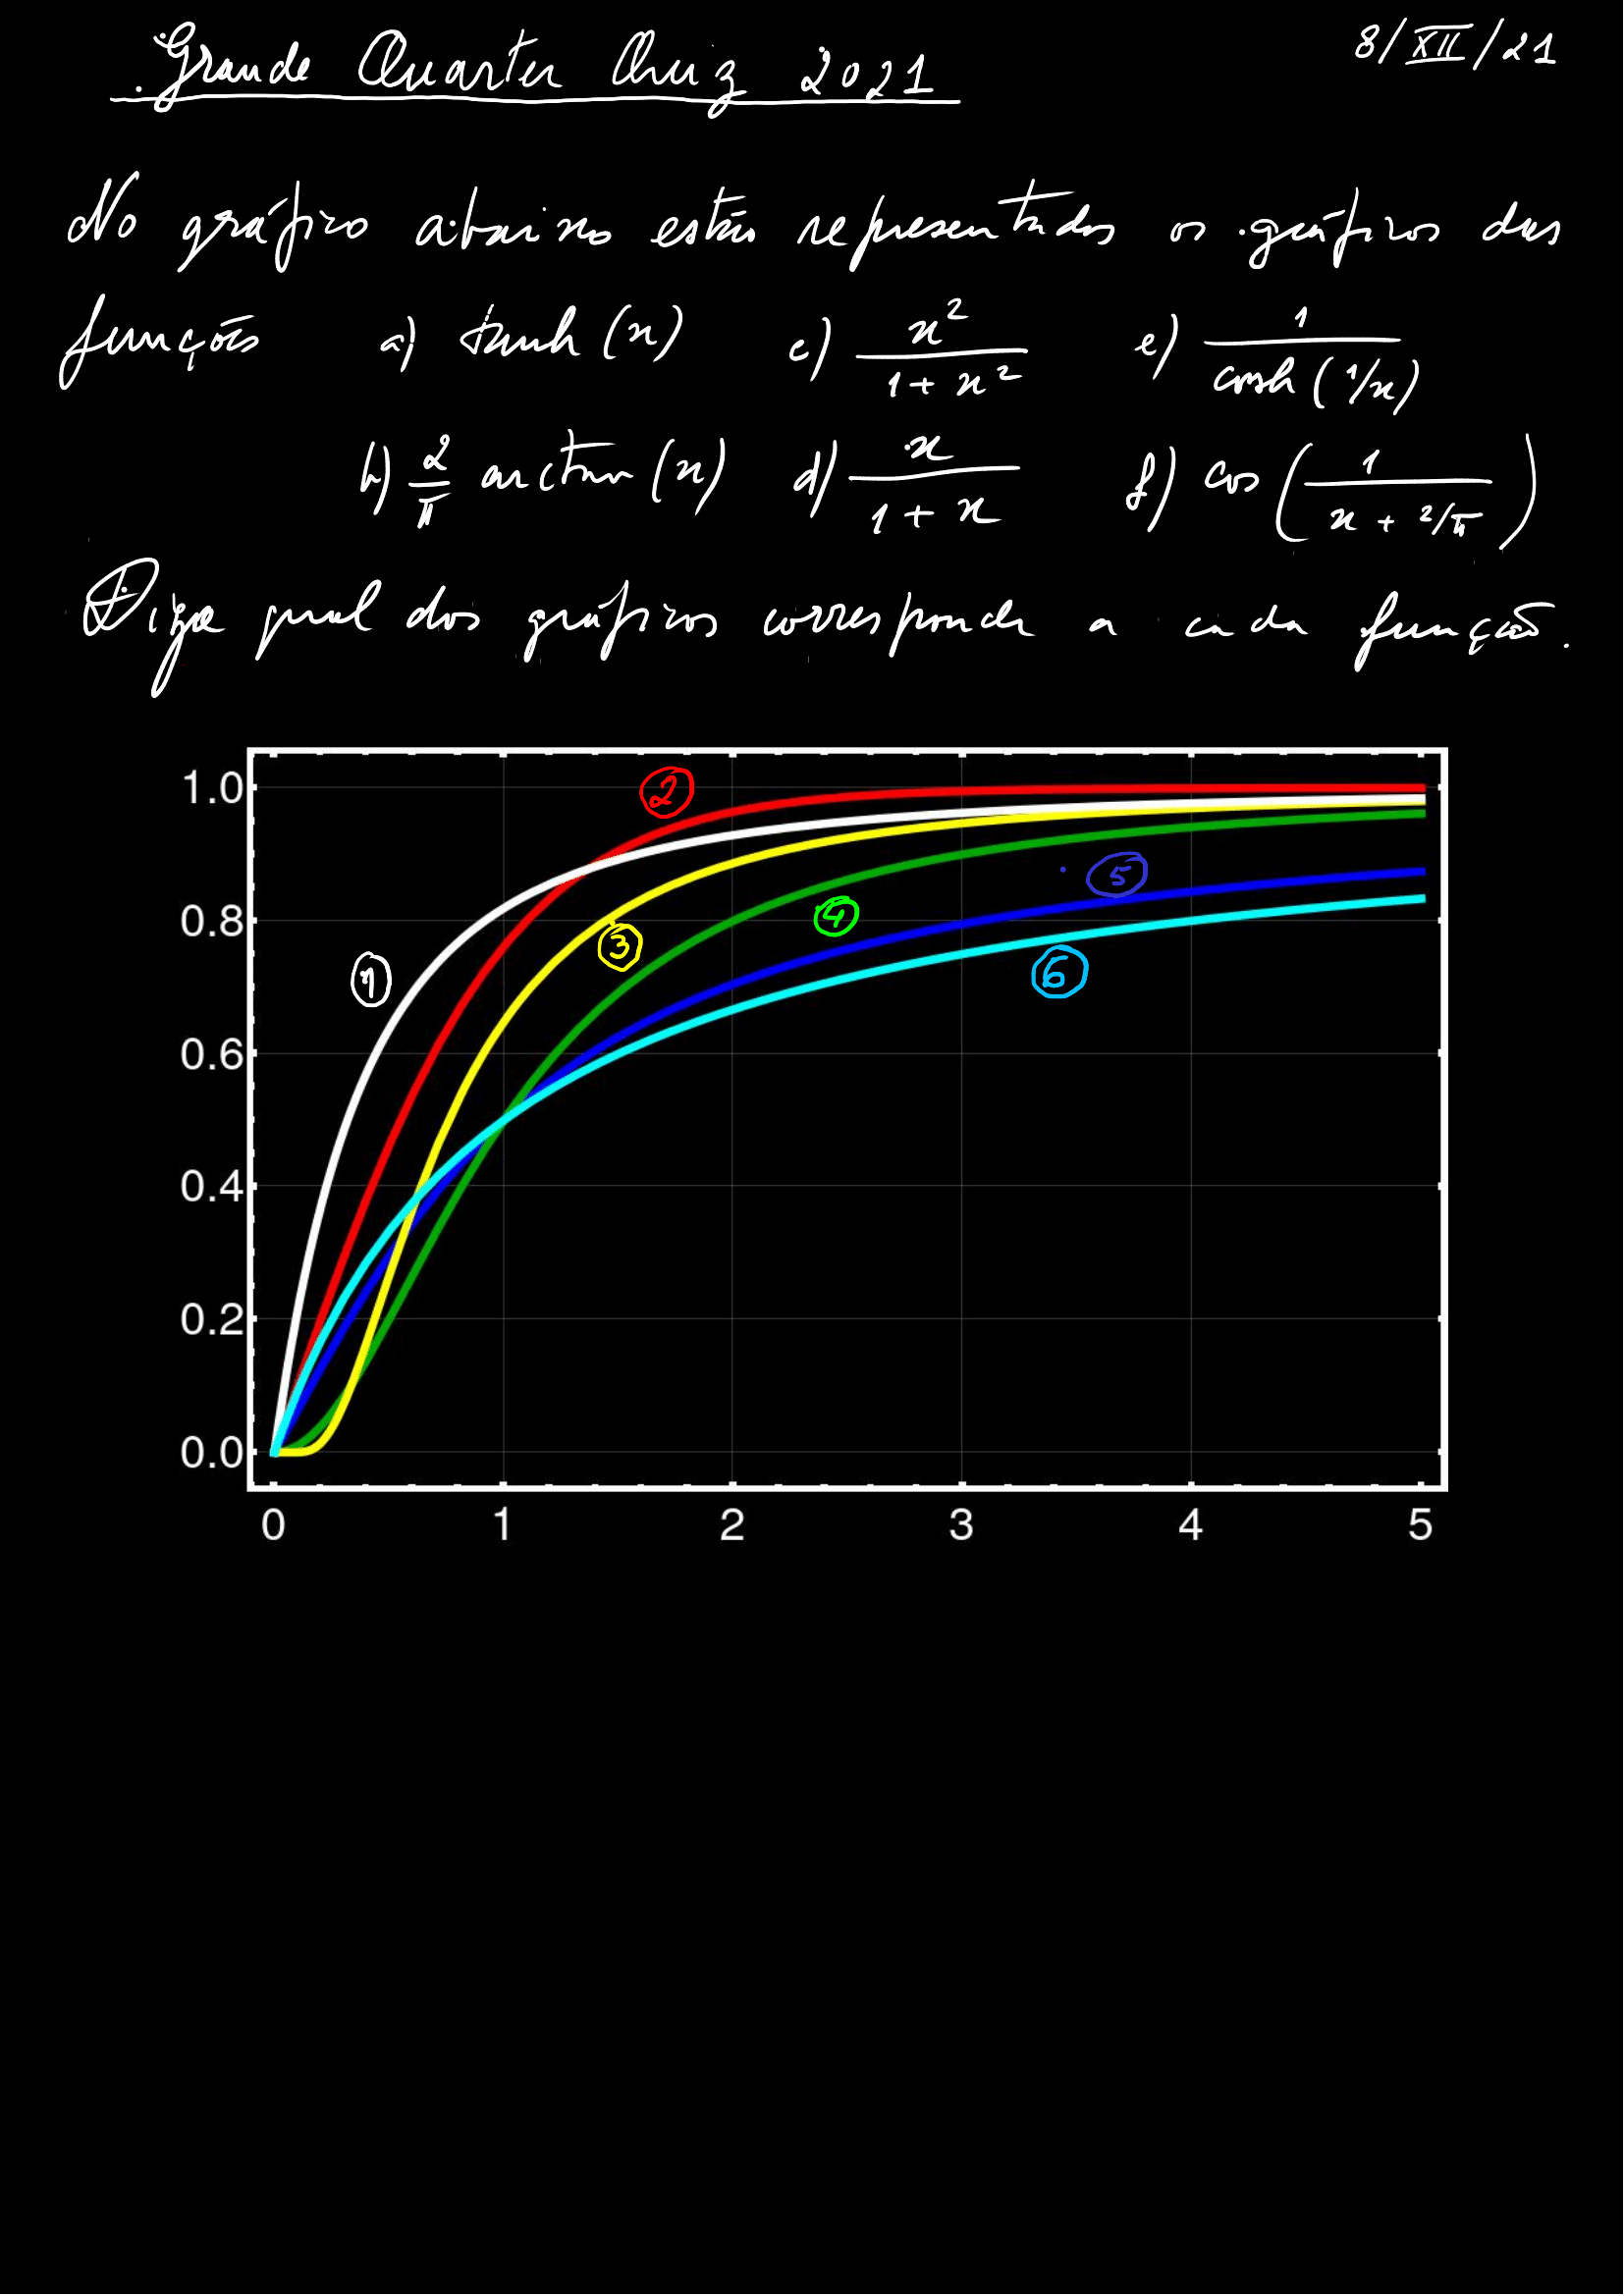 Grande Quarter Quiz 2021 8/XII/21
No gráfico abaixo estão representados os gráficos das
funções a) tanh(x) c) x²/(1+x²) e) 1/cosh(1/x)
b) 2/π arctan(x) d) x/(1+x) f) cos(1/(x+2/π))
Diga qual dos gráficos corresponde a cada função.
1.0
0.8
0.6
0.4
0.2
0.0
0 1 2 3 4 5
1
2
3
4
5
6